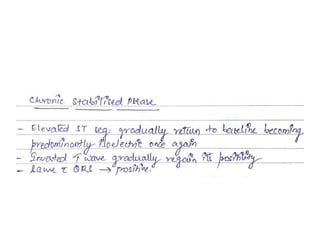 Chronic Stabilised Phase
- Elevated ST seg gradually return to baseline becoming
predominantly isoelectric once again
- Inverted T wave gradually regain its positivity
- Same c̄ QRS → positive.